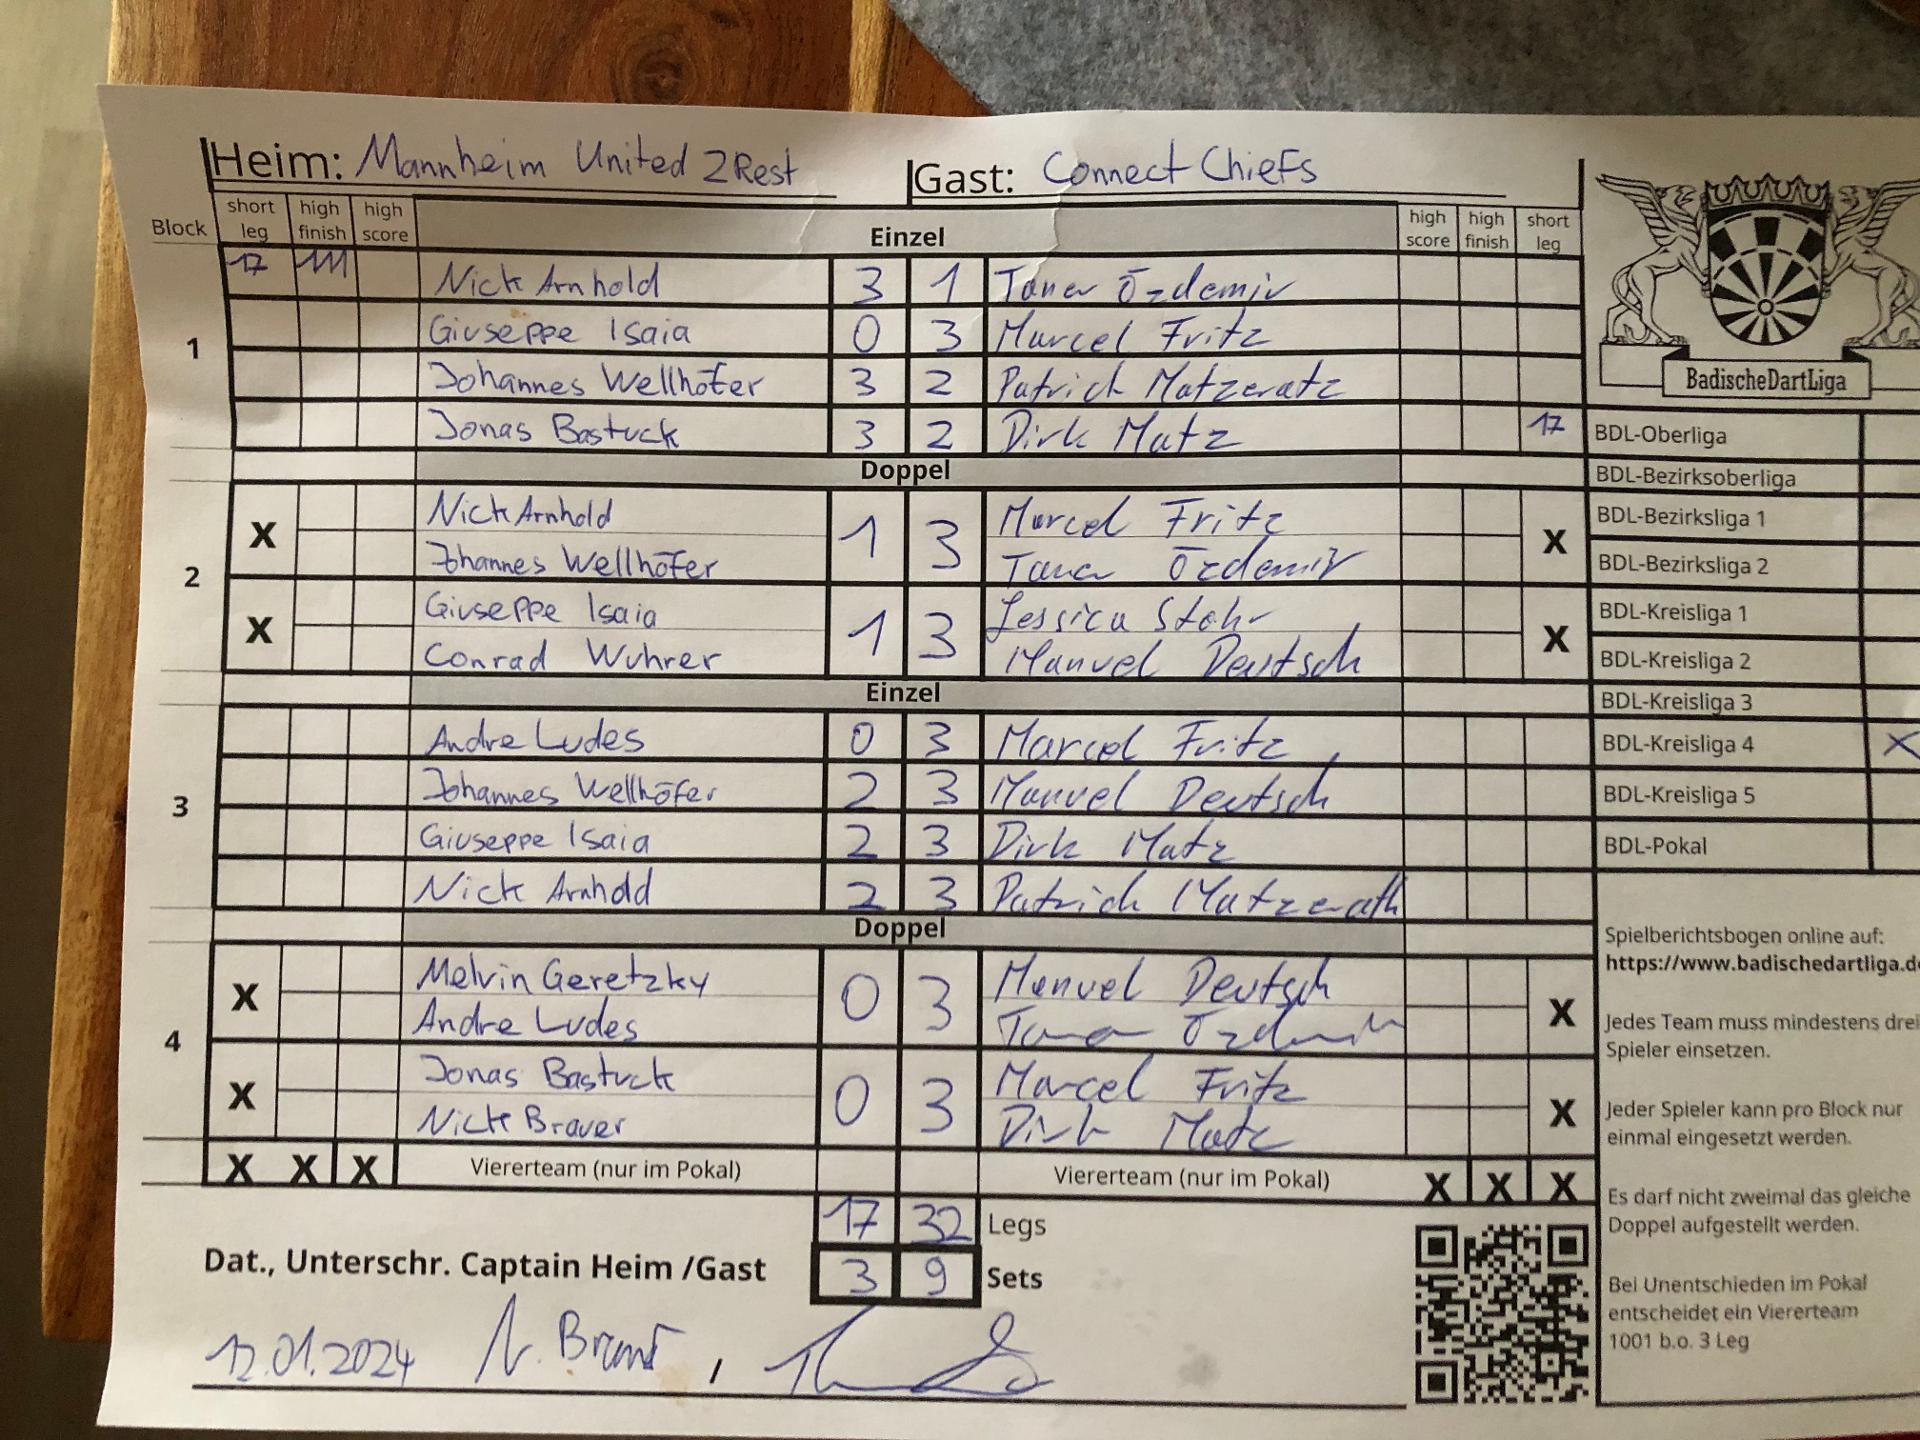 Heim: Mannheim United 2Rest Gast: Connect Chiefs
Block short leg high finish high score Einzel high score high finish short leg
1
17 111 Nick Arnhold 3 1 Taner Özdemir
Giuseppe Isaia 0 3 Marcel Fritz
Johannes Wellhöfer 3 2 Patrick Matzeratz
Jonas Bastuck 3 2 Dirk Matz 17
Doppel
2
X Nick Arnhold 1 3 Marcel Fritz X
Johannes Wellhöfer Taner Özdemir
X Giuseppe Isaia 1 3 Jessica Stohr X
Conrad Wuhrer Manuel Deutsch
Einzel
3
Andre Ludes 0 3 Marcel Fritz
Johannes Wellhöfer 2 3 Manuel Deutsch
Giuseppe Isaia 2 3 Dirk Matz
Nick Arnhold 2 3 Patrick Matzerath
Doppel
4
X Melvin Geretzky 0 3 Manuel Deutsch X
Andre Ludes Taner Özdemir
X Jonas Bastuck 0 3 Marcel Fritz X
Nick Brauer Dirk Matz
X X X Viererteam (nur im Pokal) Viererteam (nur im Pokal) X X X
17 32 Legs
Dat., Unterschr. Captain Heim /Gast 3 9 Sets
12.01.2024 N.
,
BadischeDartLiga
BDL-Oberliga
BDL-Bezirksoberliga
BDL-Bezirksliga 1
BDL-Bezirksliga 2
BDL-Kreisliga 1
BDL-Kreisliga 2
BDL-Kreisliga 3
BDL-Kreisliga 4 X
BDL-Kreisliga 5
BDL-Pokal
Spielberichtsbogen online auf:
https://www.badischedartliga.de
Jedes Team muss mindestens drei
Spieler einsetzen.
Jeder Spieler kann pro Block nur
einmal eingesetzt werden.
Es darf nicht zweimal das gleiche
Doppel aufgestellt werden.
Bei Unentschieden im Pokal
entscheidet ein Viererteam
1001 b.o. 3 Leg